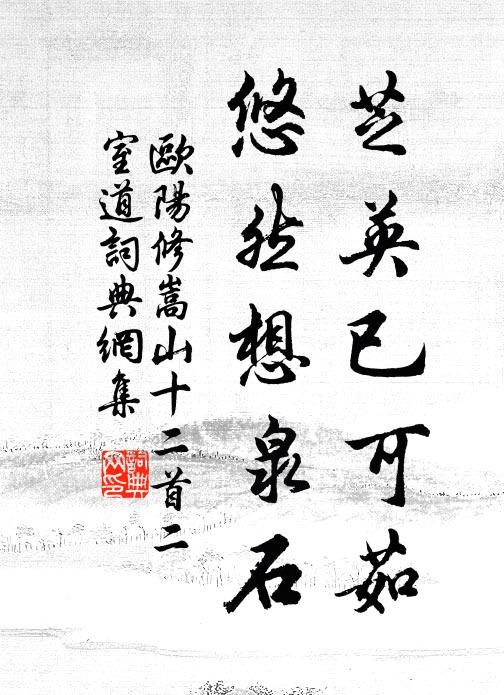 芝英已可茹
悠然想泉石
歐陽修嵩山十二首二
室道詞典網集
詞典網印